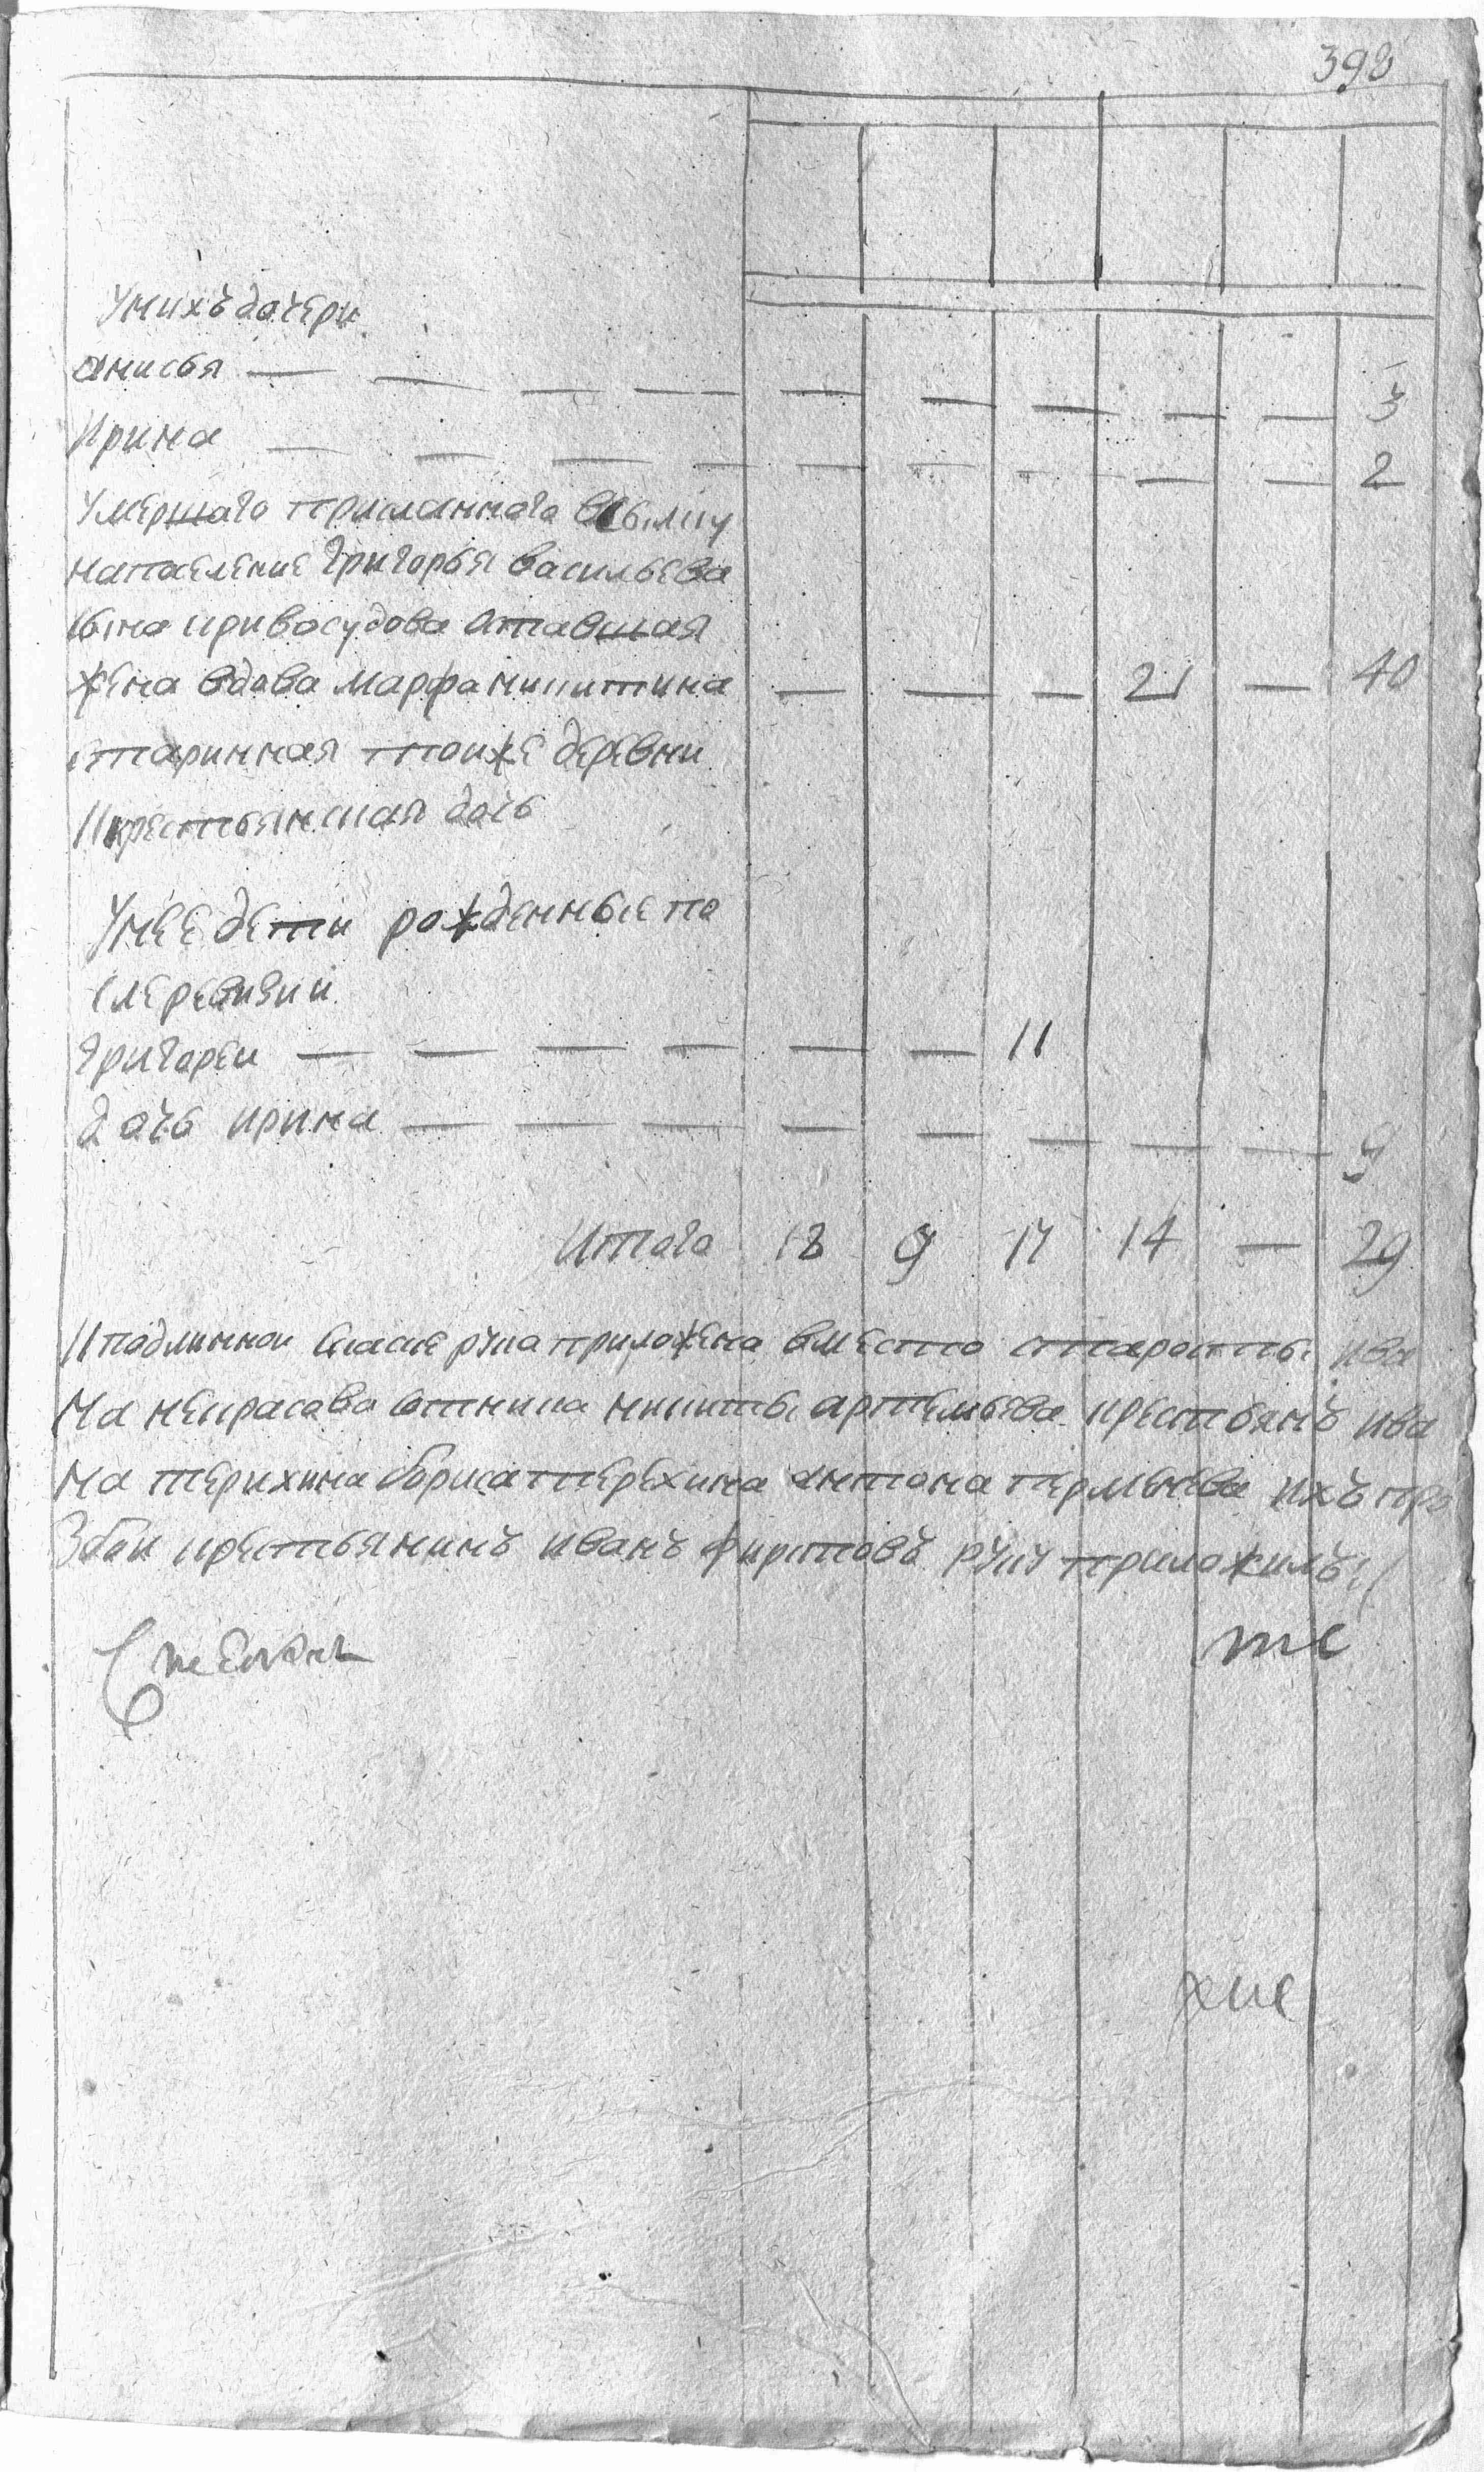 398
У нихъ дочери
анисья — — — — — — — — — 3
Ирина — — — — — — — — — 2
Умершаго присланнаго всылку
напаселение григорья васильева
сына кривасудова аставшая
жена вдова марфа никитина — — — 21 — 40
старинная тоиже деревни
крестьянская дочь
У нее дети рожденные по
сле ревизии
григореи — — — — — — 11
дочь ирина — — — — — — — — 9
Итого 18 9 17 14 — 29
К подлиннои скаске рука приложена вместо старосты ива
на некрасава сотника никиты артемьева крестьянъ ива
на терихина бориса терехина антона ихъ про
збои крестьянинъ иванъ фирстовъ руку приложилъ